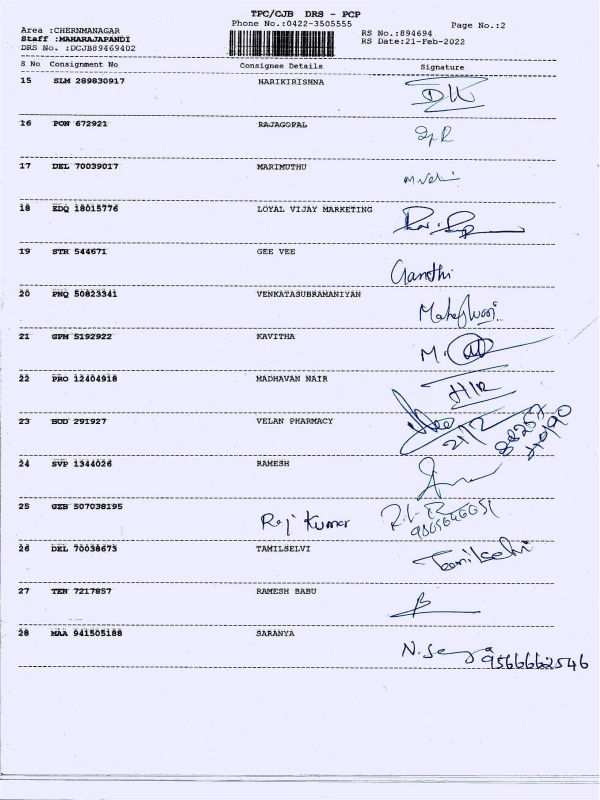 TPC/CJB DRS - PCP
Phone No.:0422-3505555
Page No.:2
Area :CHERNMANAGAR
Staff :MAHARAJAPANDI
DRS No. :DCJB89469402
RS No.:894694
RS Date:21-Feb-2022
S No Consignment No Consignee Details Signature
15 SLM 289830917 HARIKIRISHNA
16 PON 672921 RAJAGOPAL
17 DEL 70039017 MARIMUTHU
18 EDQ 18015776 LOYAL VIJAY MARKETING
19 STR 544671 GEE VEE Gandhi
20 PNQ 50823341 VENKATASUBRAMANIYAN
21 GPM 5192922 KAVITHA
22 PRO 12404918 MADHAVAN NAIR
23 BOD 291927 VELAN PHARMACY
24 SVP 1344026 RAMESH
25 GZB 507038195 Raj Kumar
26 DEL 70038673 TAMILSELVI Tamilselvi
27 TEN 7217857 RAMESH BABU
28 MAA 941505188 SARANYA
9566662546